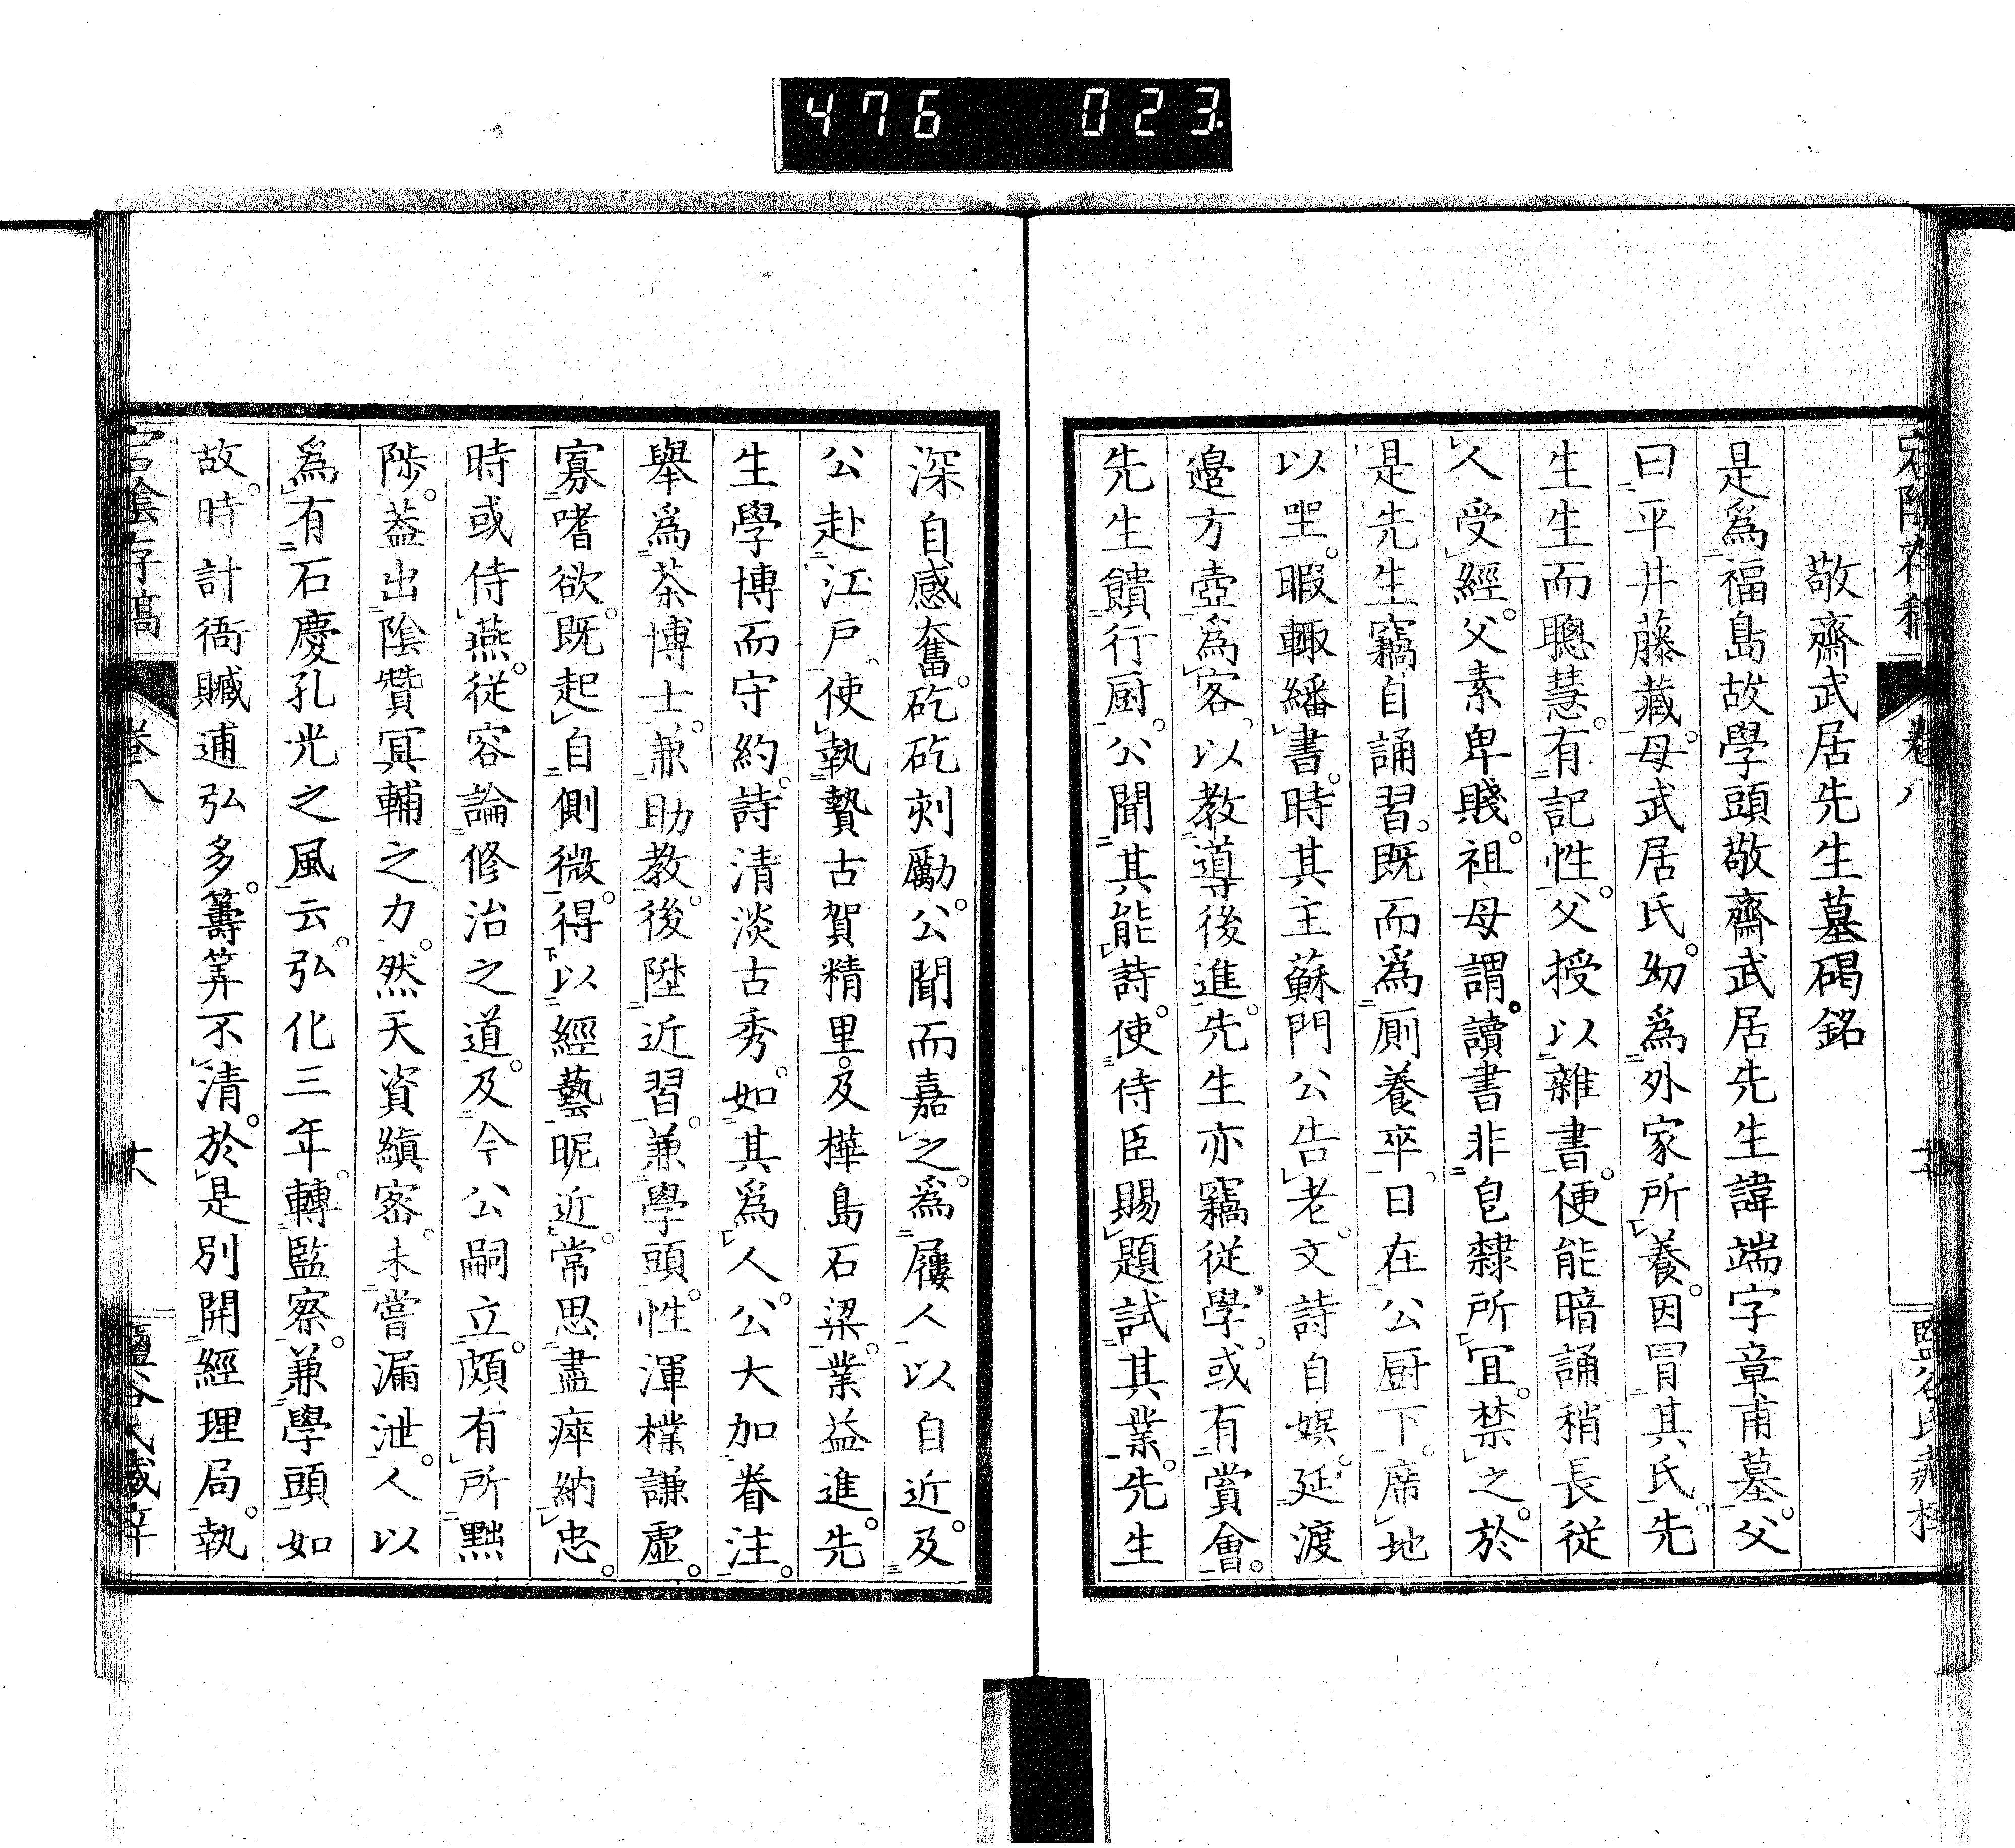 476 023.
宕陰存稿 卷八
敬齋武居先生墓碣銘
是爲福島故學頭敬齋武居先生諱端字章甫墓。父
曰平井藤藏。母武居氏。幼爲外家所養。因冒其氏。先
生生而聰慧。有記性。父授以雜書。便能暗誦稍長從
人受經。父素卑賤。祖母謂。讀書非皂隸所宜。禁之。於
是先生竊自誦習。既而爲廁養卒。日在公厨下。席地
以坐。暇輙繙書。時其主蘇門公告老。文詩自娯。延渡
邉方壺爲客、以教導後進。先生亦竊從學。或有賞會。
先生饋行厨。公聞其能詩。使侍臣賜題試其業。先生
深自感奮。矻矻刻勵。公聞而嘉之。爲屨人以自近。及
公赴江戸、使執贄古賀精里。及樺島石梁。業益進。先
生學博而守約。詩清淡古秀。如其爲人。公大加眷注。
舉爲茶博士。兼助教。後陞近習。兼學頭。性渾樸謙虛。
寡嗜欲。既起自側微。得以經藝昵近。常思盡瘁納忠。
時或侍燕。從容論修治之道。及今公嗣立。頗有所黜
陟。葢出陰贊冥輔之力。然天資縝密。未嘗漏泄。人以
爲有石慶孔光之風云。弘化三年。轉監察。兼學頭如
故。時計衙贓逋弘多。籌筭不清。於是別開經理局。執
宕陰存稿 卷八